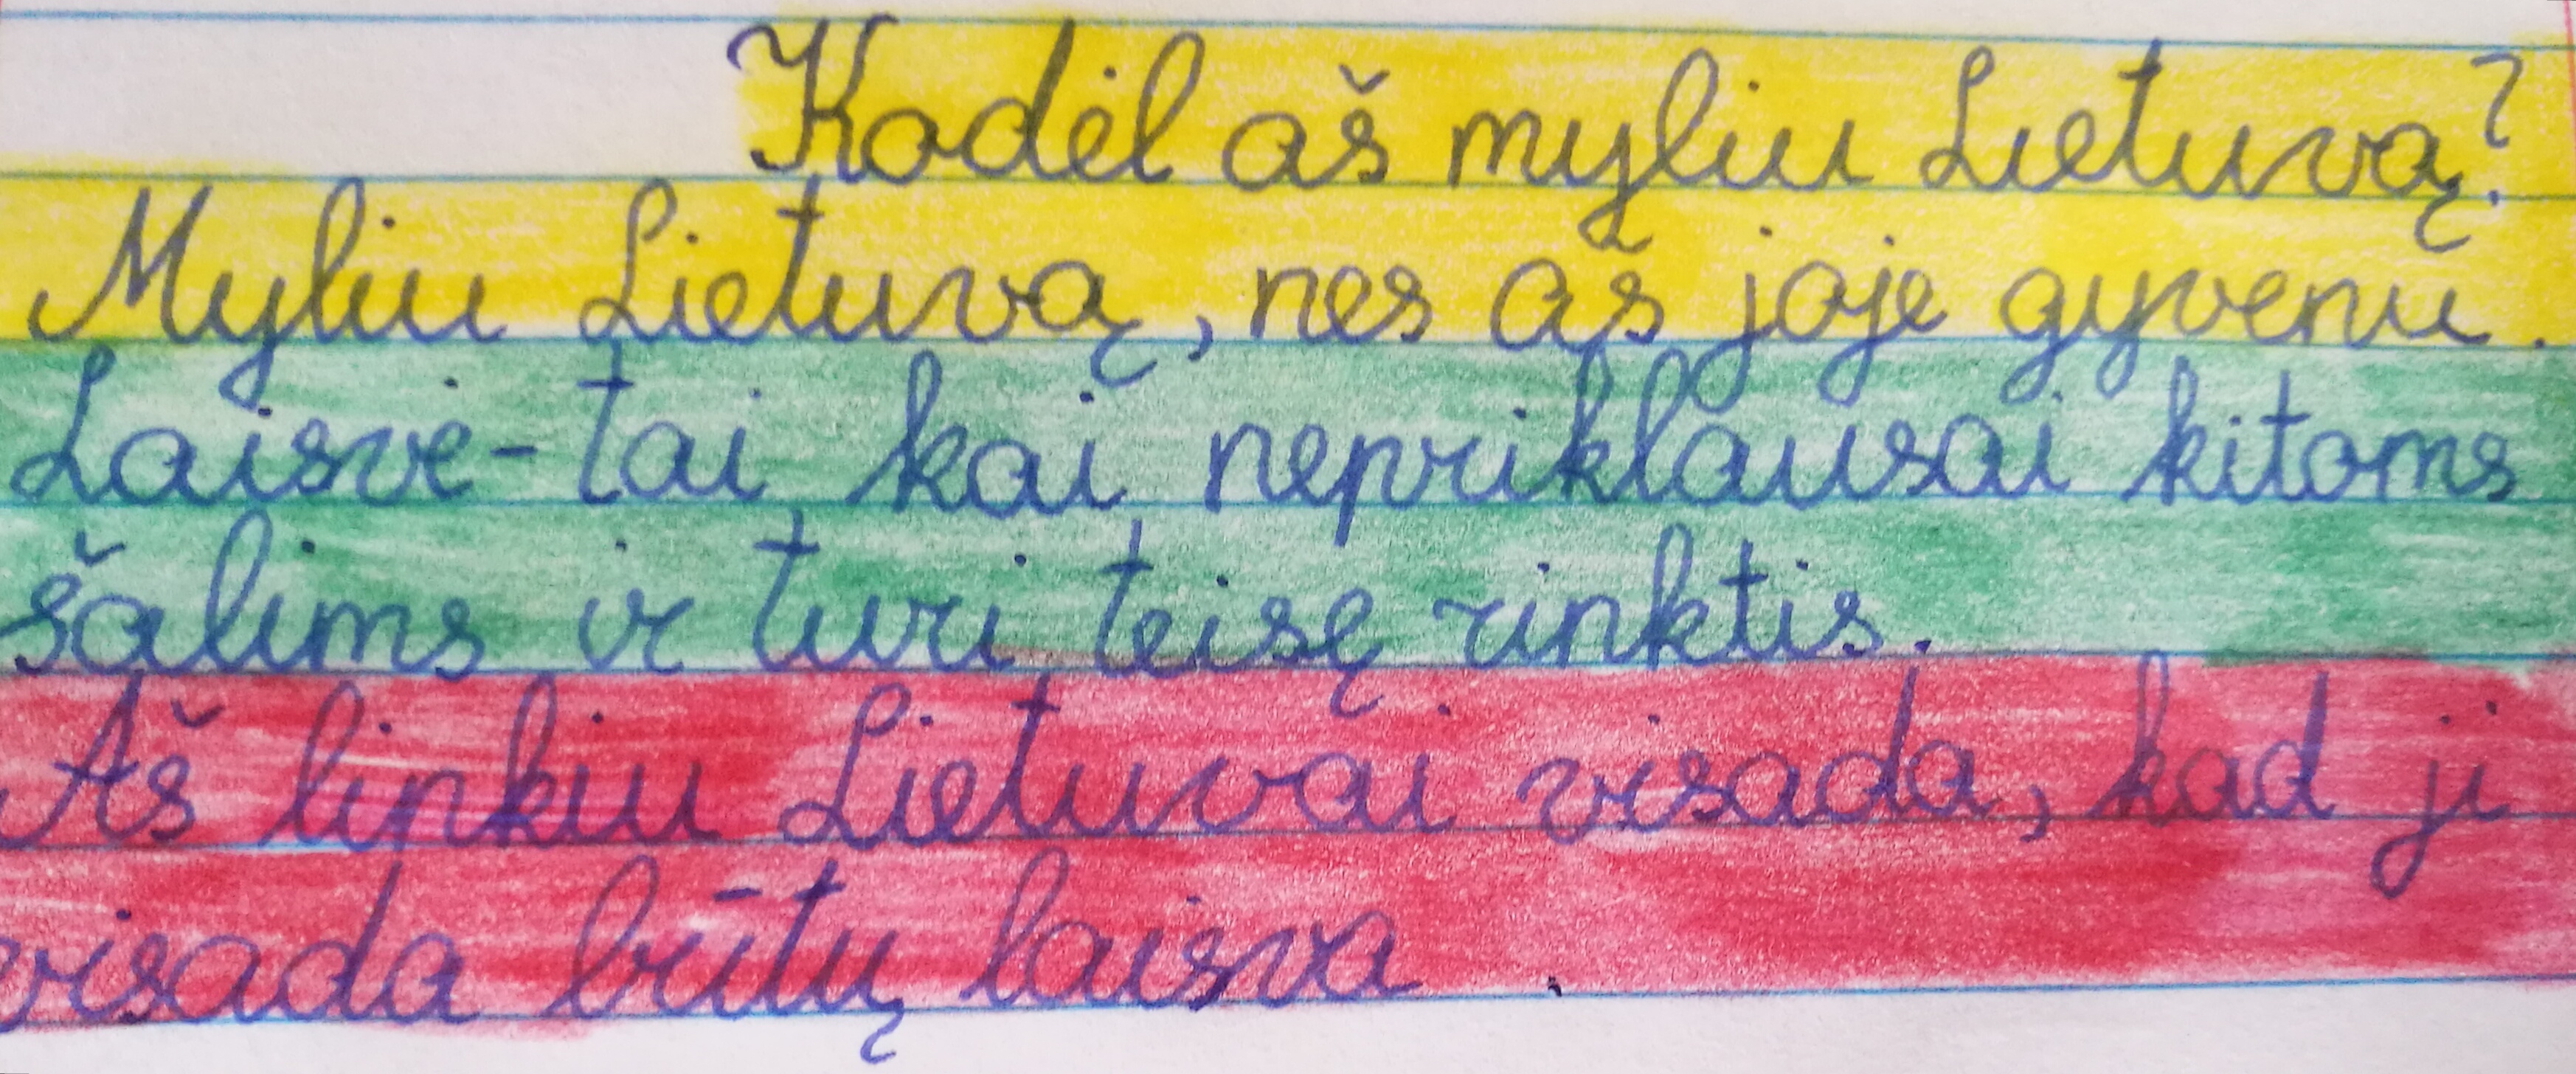 Kodėl aš myliu Lietuvą?
Myliu Lietuvą, nes aš joje gyvenu.
Laisvė-tai kai nepriklausai kitoms
šalims ir turi teisę rinktis.
Aš linkiu Lietuvai visada, kad ji
visada būtų laisva.